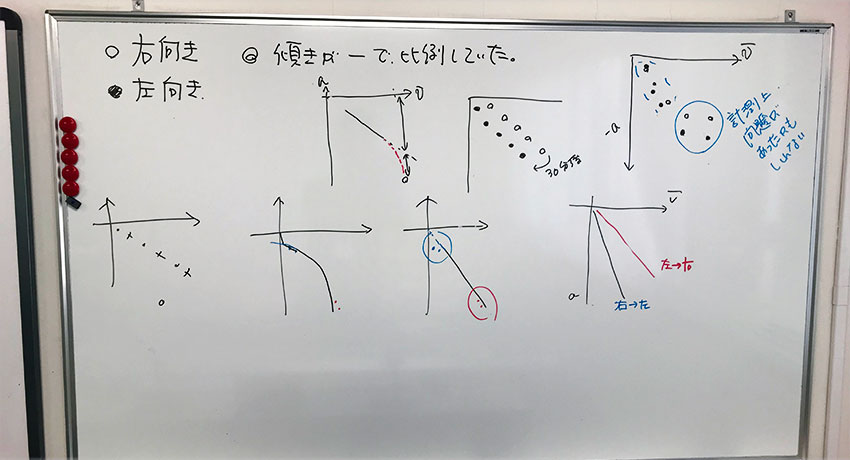 ○ 右向き
● 左向き
◎ 傾きが一で比例していた。
a
v̄
30分後
v̄
-a
計測上
問題が
あったかも
しれない
v̄
a
左→右
右→左